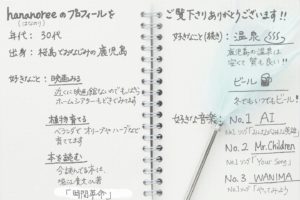 hananoreeのプロフィールを
(はなのり)
年代：30代
出身：桜島でおなじみの鹿児島
好きなこと：映画みる
近くに映画館ないのでもっぱら
ホームシアターもどきでみてます
植物育てる
ベランダでオリーブやハーブなど
育ててます
本を読む
今読んでる本は、
堀江貴文の著
「時間革命」
ご覧下さりありがとうございます!!
好きなこと(続き)：温泉
鹿児島の温泉は
安くて質も良い!!
ビール
冬でもいつでもビール!
好きな音楽：No.1 AI
No.1ソング「みんながみんな英雄」
No.2 Mr.Children
No.1ソング「Your Song」
No.3 WANIMA
No.1ソング「やってみよう」